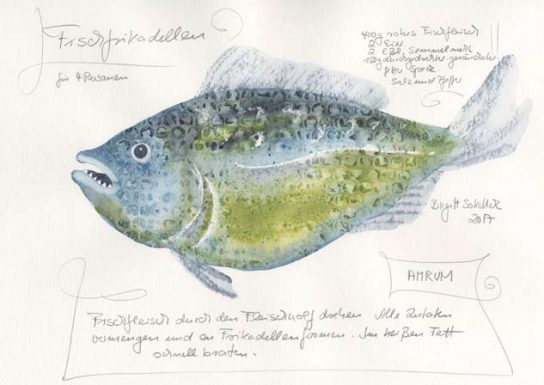 Fischfrikadellen
für 4 Personen
400g rohes Fischfleisch
2 Eier
2 Semmelmehl
Speck
Salz und Pfeffer
Birgitt
2017
AMRUM
Fischfleisch durch den Fleischwolf drehen. Alle Zutaten
vermengen und an Frikadellen formen. Im heißen Fett
schnell braten.